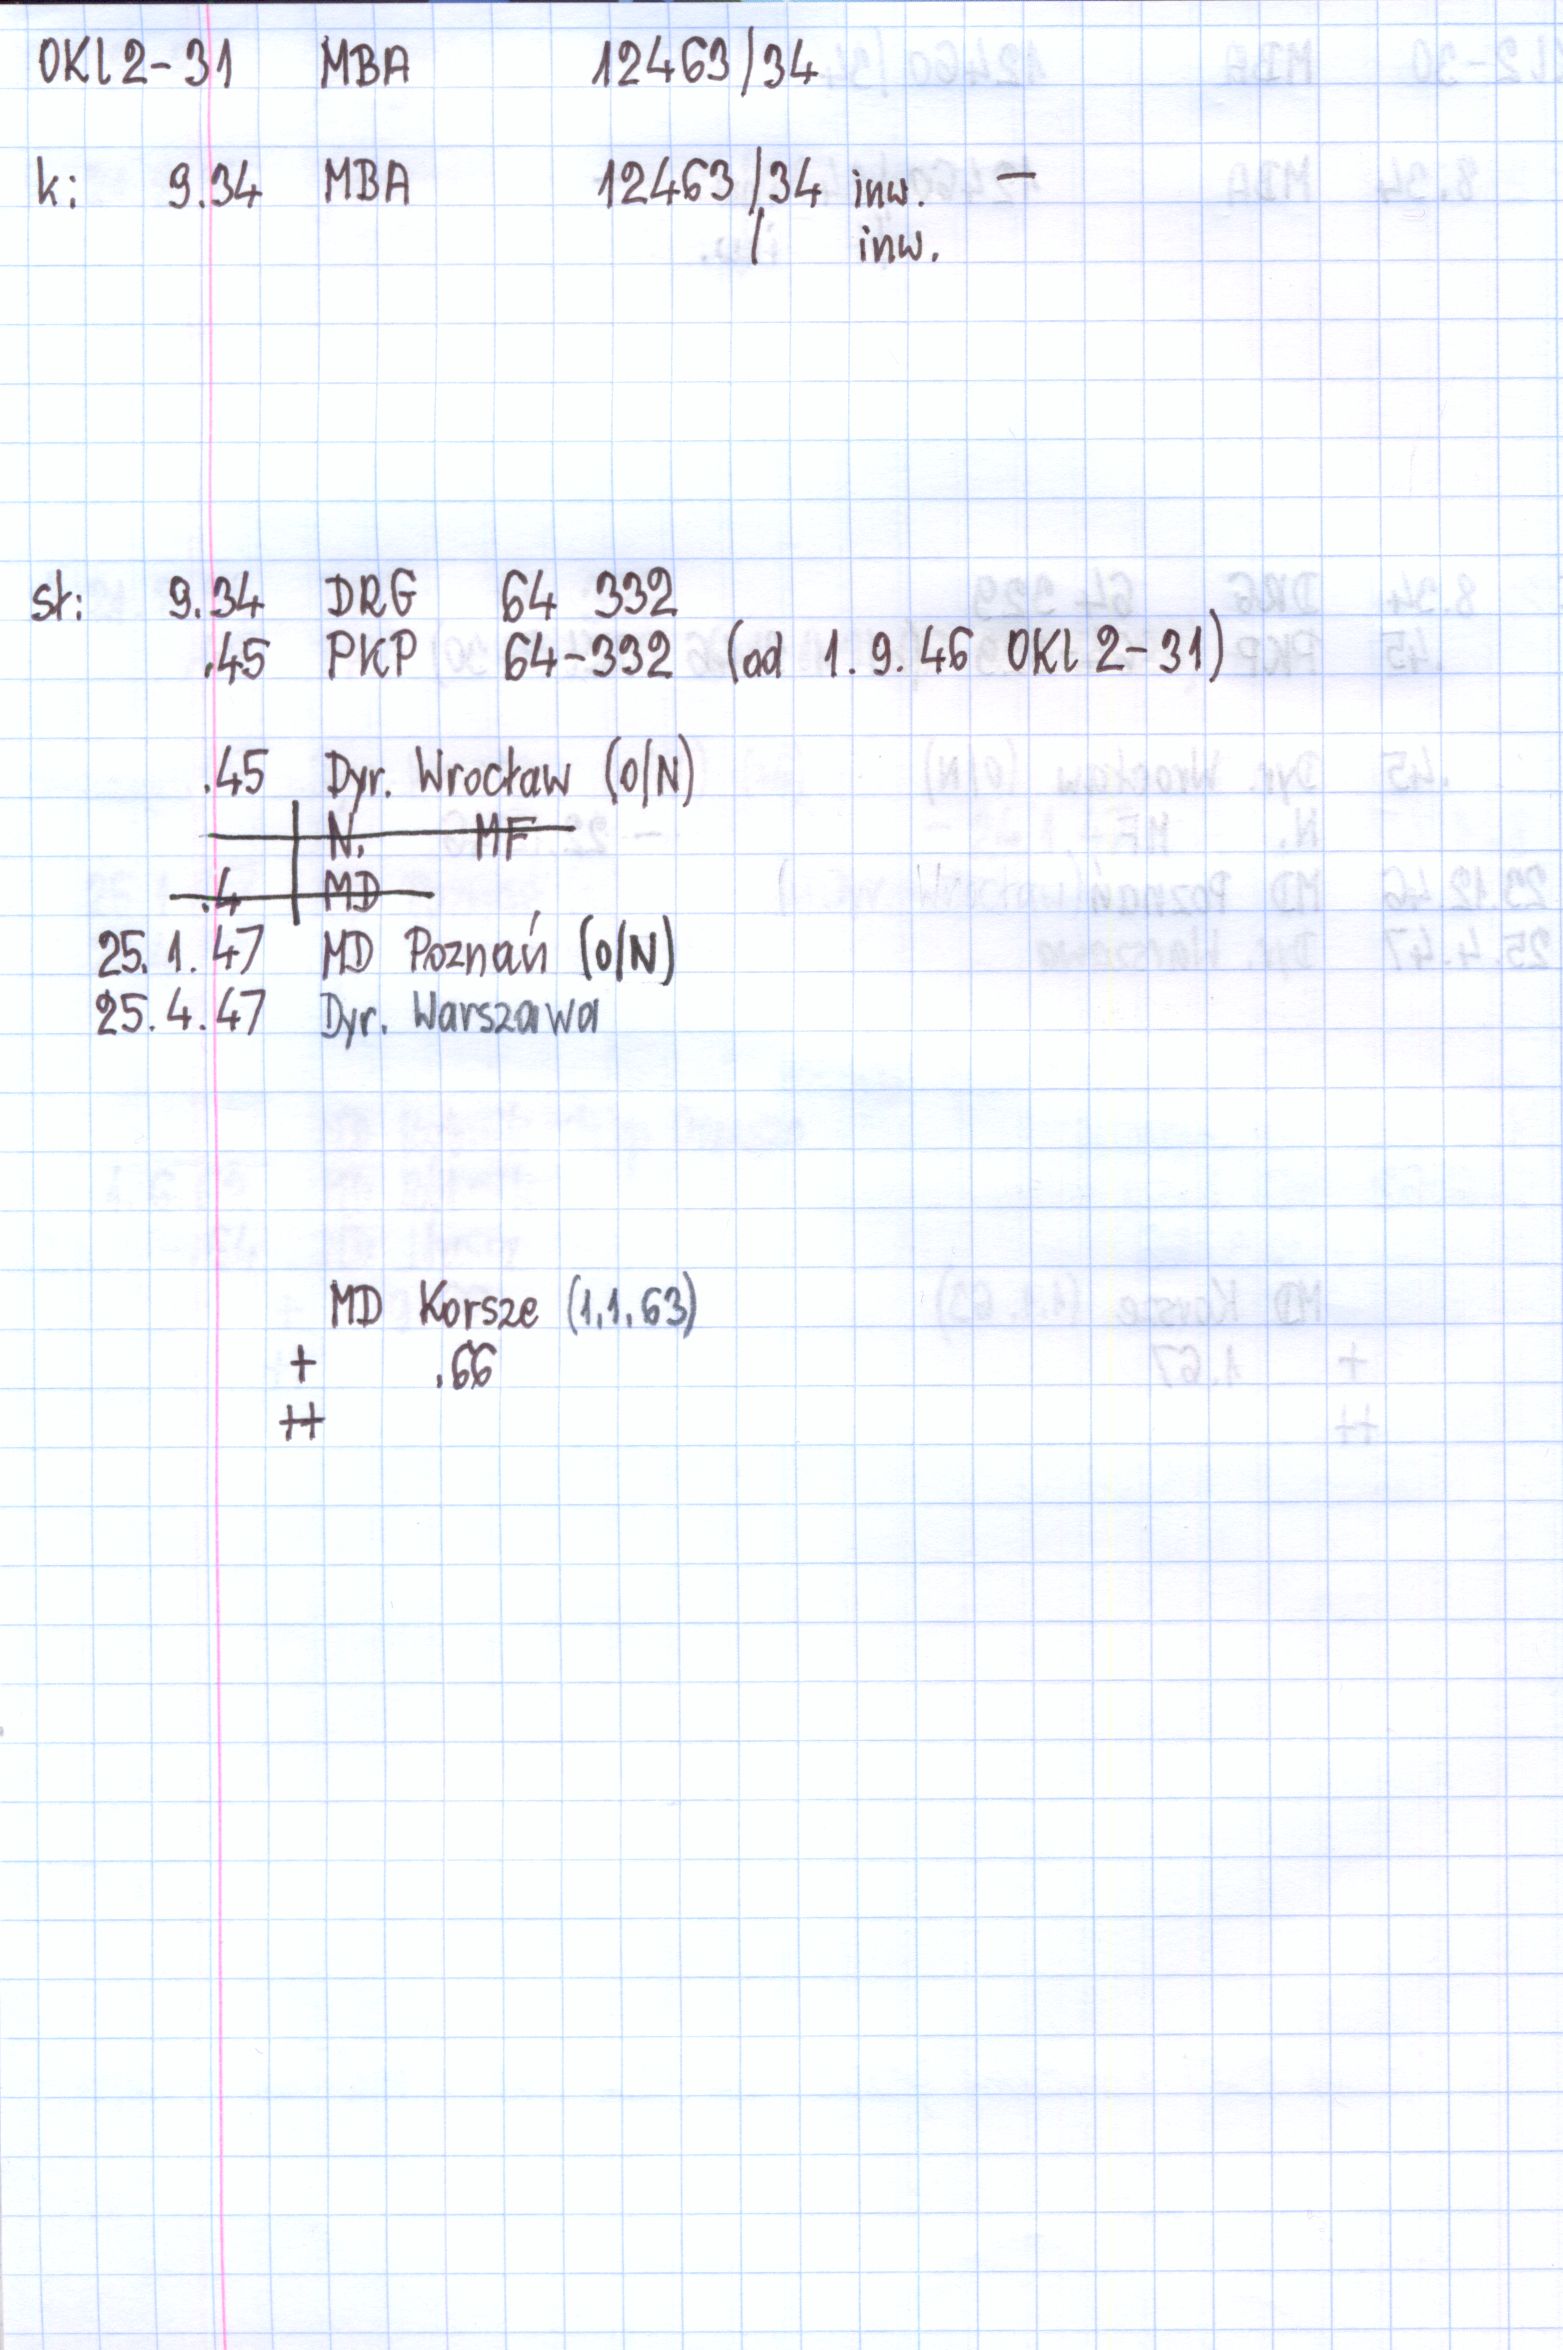 OKl 2-31 MBA 12463/34
k: 9.34 MBA 12463/34 inw. –
/ inw.
st: 9.34 DRG 64 332
.45 PKP 64-332 (od 1.9.46 OKl 2-31)
.45 Dyr. Wrocław (O/N)
N. MF
.4 MD
25.1.47 MD Poznań (O/N)
25.4.47 Dyr. Warszawa
MD Korsze (1.1.63)
+ .66
++